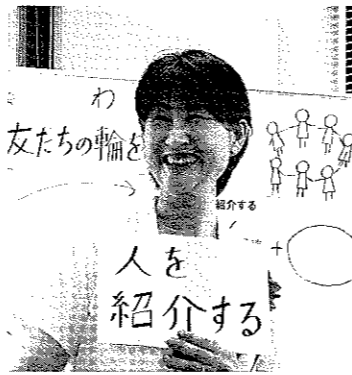 わ
友たちの輪を
紹介する
人を
紹介する